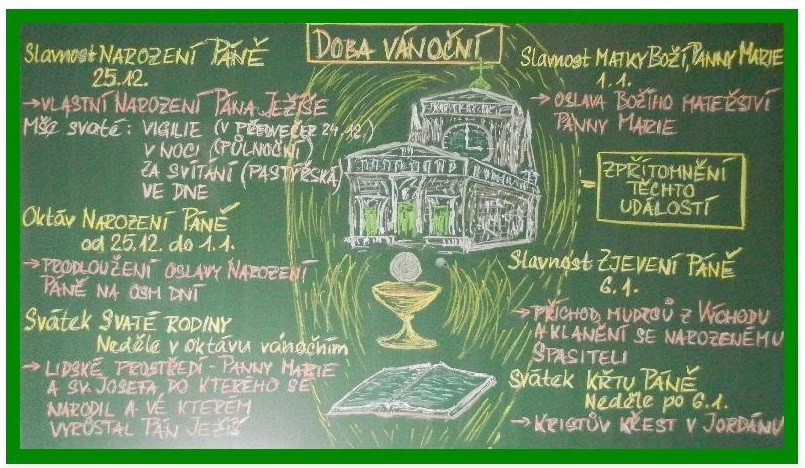 DOBA VÁNOČNÍ
Slavnost NAROZENÍ PÁNĚ
25.12.
→VLASTNÍ NAROZENÍ PÁNA JEŽÍŠE
MŠE svaté: VIGILIE (V PŘEDVEČER 24.12.)
V NOCI (PŮLNOČNÍ)
ZA SVÍTÁNÍ (PASTÝŘSKÁ)
VE DNE
Oktáv NAROZENÍ PÁNĚ
od 25.12. do 1.1.
→PRODLOUŽENÍ OSLAVY NAROZENÍ
PÁNĚ NA OSM DNÍ
Svátek SVATÉ RODINY
Neděle v oktávu vánočním
→LIDSKÉ PROSTŘEDÍ - PANNY MARIE
A SV. JOSEFA DO KTERÉHO SE
NARODIL A VE KTERÉM
VYRŮSTAL PÁN JEŽÍŠ
Slavnost MATKY BOŽÍ, PANNY MARIE
1.1.
→OSLAVA BOŽÍHO MATEŘSTVÍ
PANNY MARIE
= ZPŘÍTOMNĚNÍ
TĚCHTO
UDÁLOSTÍ
Slavnost ZJEVENÍ PÁNĚ
6.1.
→PŘÍCHOD MUDRCŮ Z VÝCHODU
A KLANĚNÍ SE NAROZENÉMU
SPASITELI
Svátek KŘTU PÁNĚ
Neděle po 6.1.
→KRISTŮV KŘEST V JORDÁNU